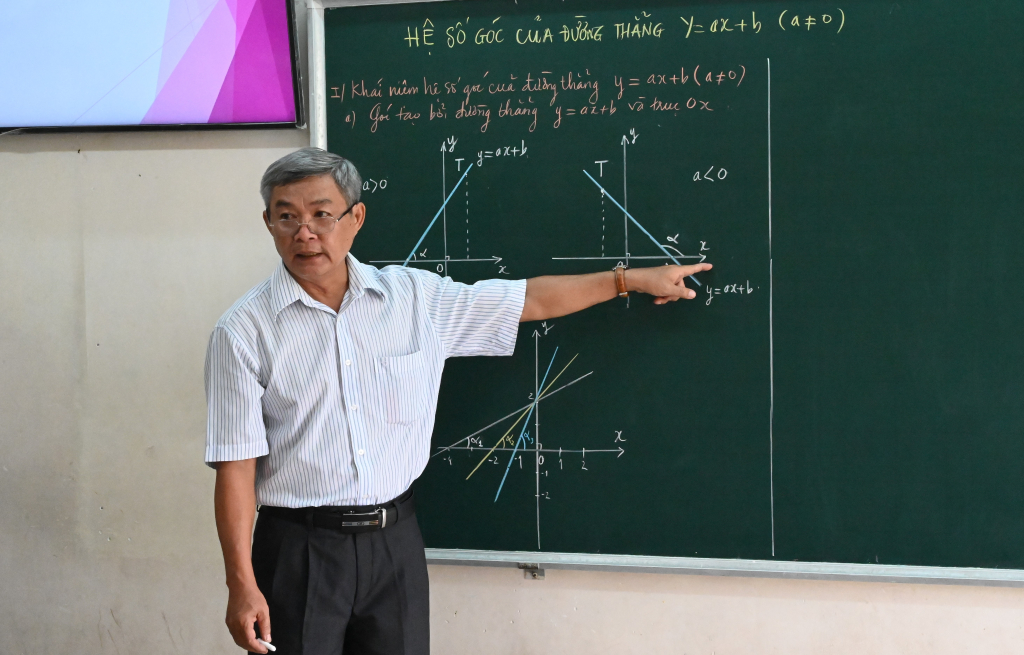 HỆ SỐ GÓC CỦA ĐƯỜNG THẲNG Y=ax+b (a≠0)
I/ Khái niệm hệ số góc của đường thẳng y=ax+b (a≠0)
a) Góc tạo bởi đường thẳng y=ax+b và trục Ox
a>0
y
T
y=ax+b
α
0
x
y
T
a<0
α
x
y=ax+b
y
2
x
α1
α2
α3
-4
-2
-1
0
1
2
-1
-2